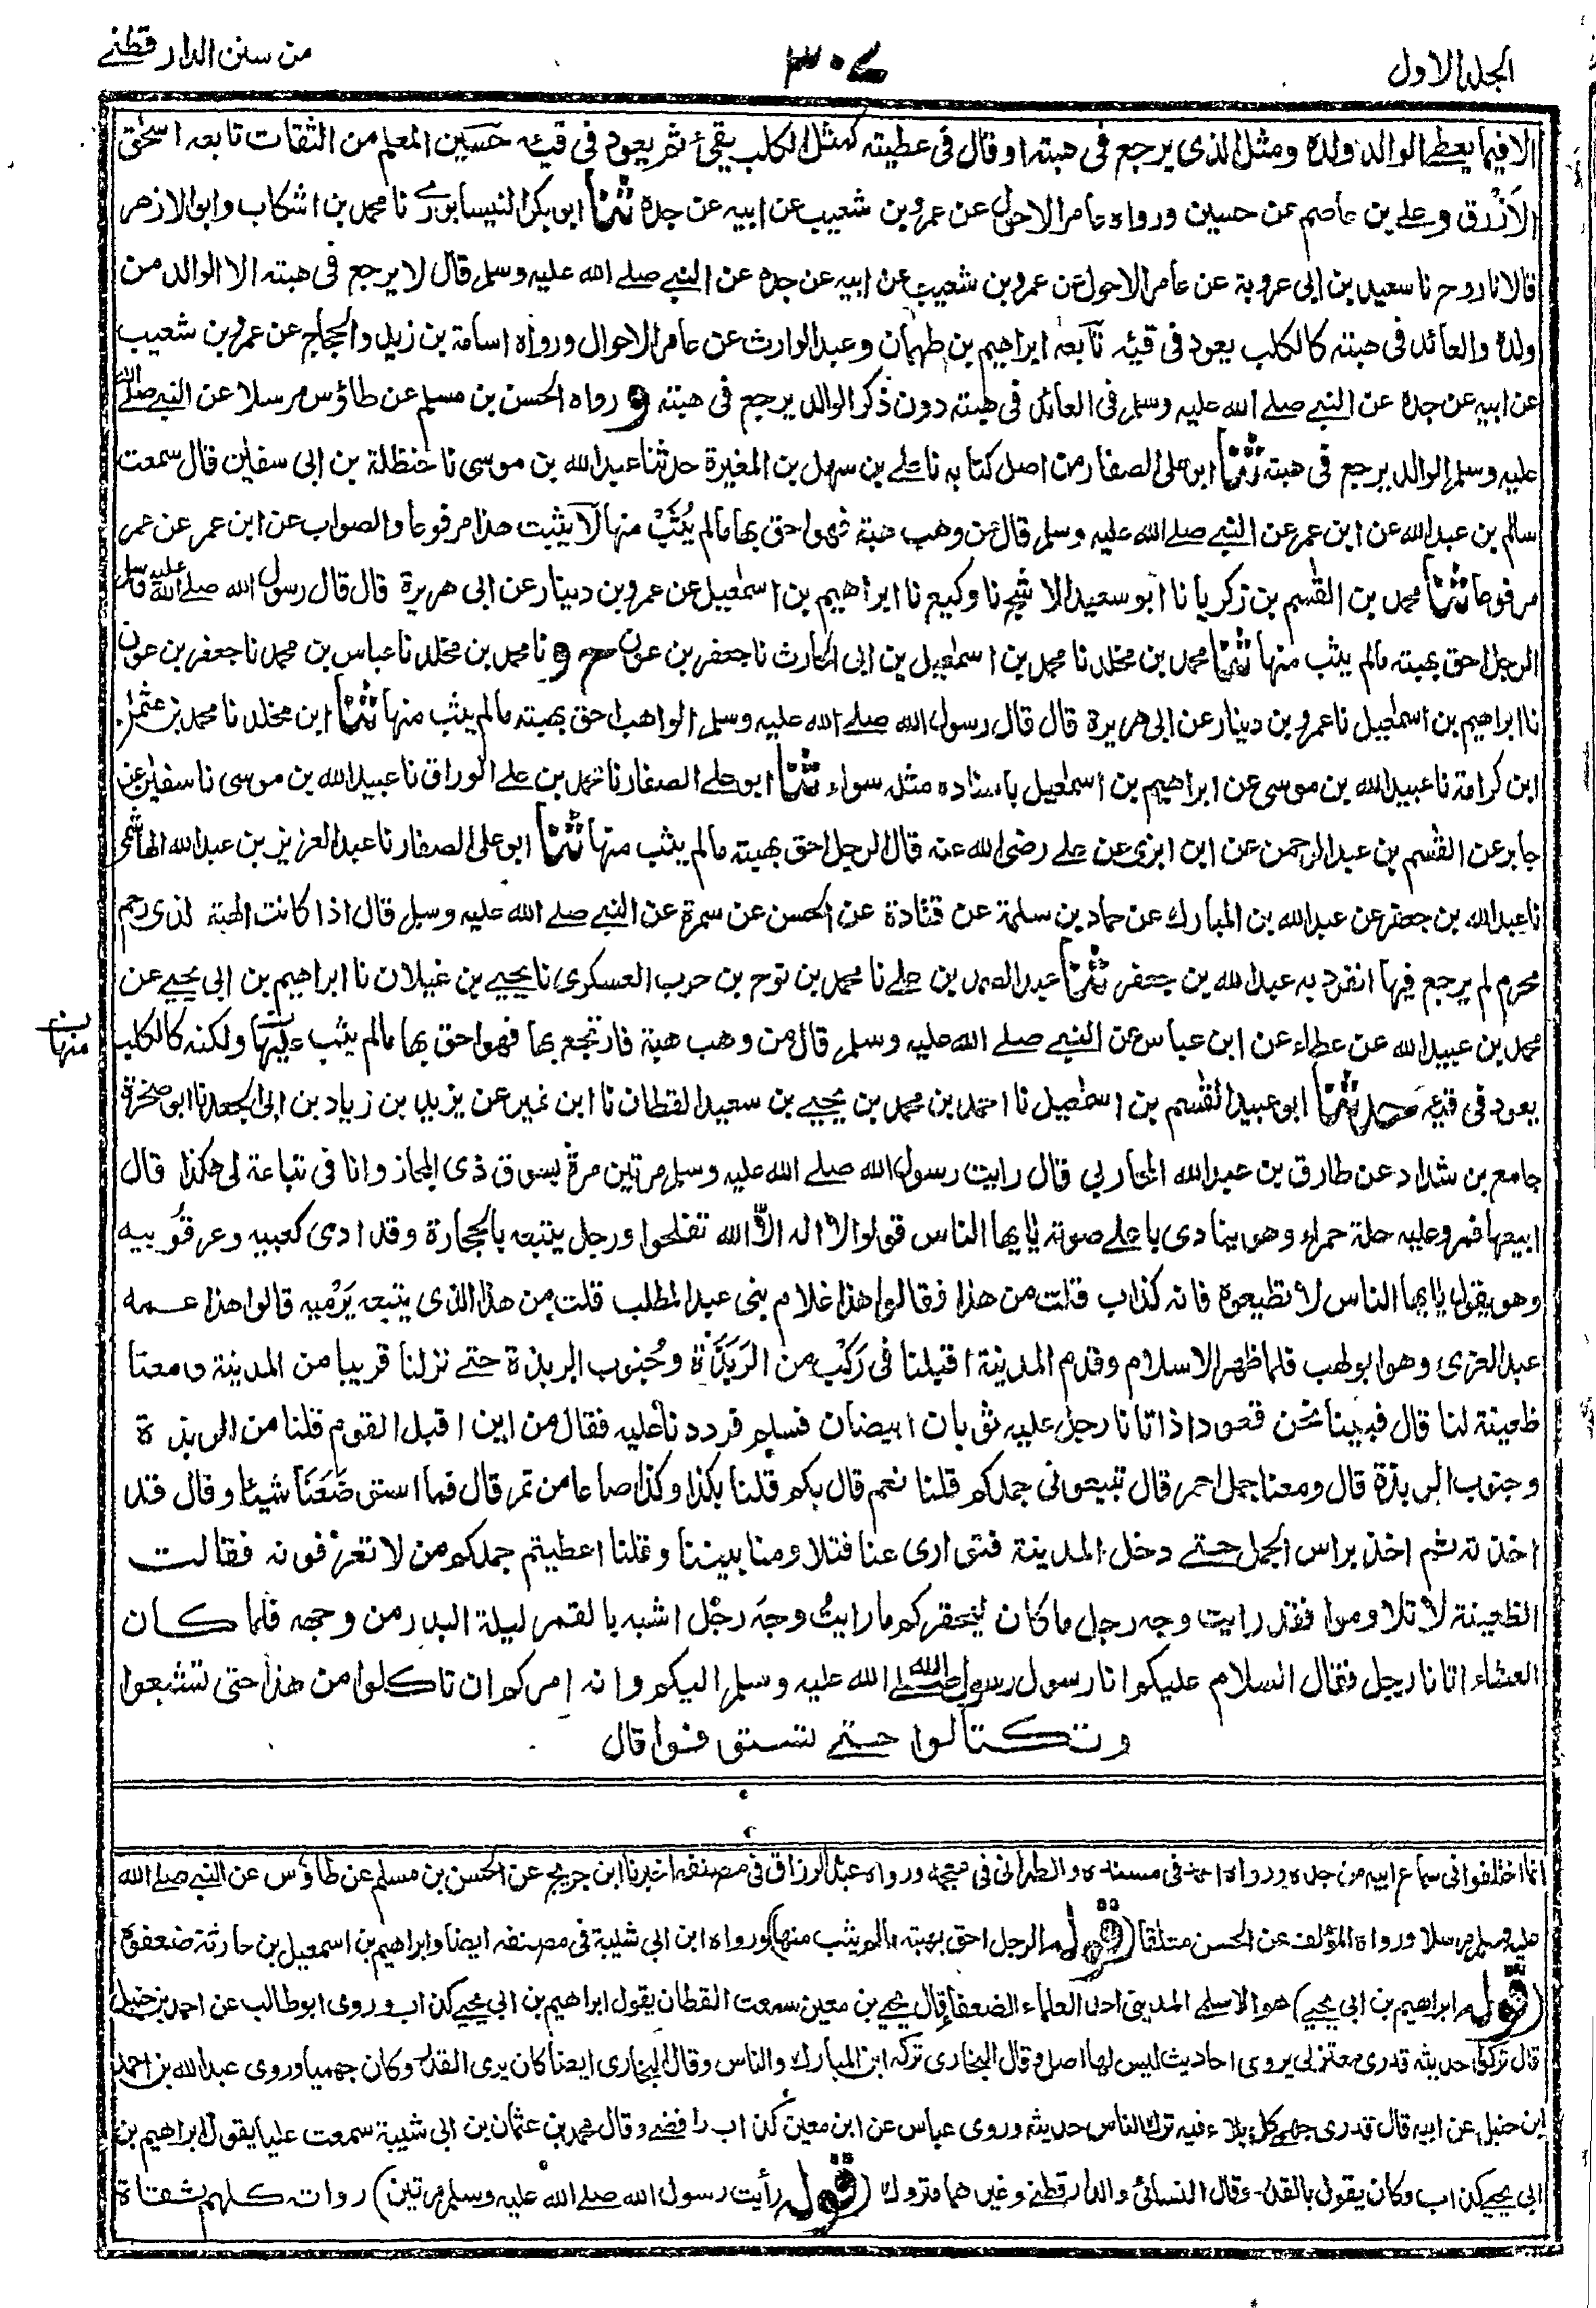 الجلد الاول
٣٠٧
من سنن الدارقطنے
الا فيما يعطے الوالد ولدہ ومثل الذی يرجع فی هبته او قال فی عطيته كمثل الكلب يقیٔ ثم يعود فی قيئه حسين المعلم من الثقات تابعه اسحٰق
الازرق وعلے بن عاصم عن حسين ورواه عامر الاحول عن عمرو بن شعيب عن ابيه عن جده ثنا ابو بكر النيسابورے نا محمد بن اشكاب وابو الازهر
قالا نا روح نا سعيد بن ابی عروبة عن عامر الاحول عن عمرو بن شعيب عن ابيه عن جده عن النبے صلے الله عليه وسلم قال لا يرجع فی هبته الا الوالد من
ولدہ والعائد فی هبته كالكلب يعود فی قيئه تابعه ابراهيم بن طهمان وعبد الوارث عن عامر الاحوال ورواه اسامة بن زيد والحجاج عن عمرو بن شعيب
عن ابيه عن جده عن النبے صلے الله عليه وسلم فی العائد فی هبته دون ذكر الوالد يرجع فی هبته و رواه الحسن بن مسلم عن طاؤس مرسلا عن النبے صلے الله
عليه وسلم الوالد يرجع فی هبته ثنا ابو علی الصفار من اصل كتابه نا علے بن سهل بن المغيرة حدثنا عبيد الله بن موسی نا حنظلة بن ابی سفيٰن قال سمعت
سالم بن عبد الله عن ابن عمر عن النبے صلے الله عليه وسلم قال من وهب هبة فهو احق بها مالم يُثَبْ منها لا يثبت هذا مرفوعا والصواب عن ابن عمر عن عمر
مرفوعا ثنا محمد بن القٰسم بن زكريا نا ابو سعيد الاشج نا وكيع نا ابراهيم بن اسمٰعيل عن عمرو بن دينار عن ابی هريرة قال قال رسول الله صلے الله عليه وسلم
الرجل احق بهبته مالم يثب منها ثنا محمد بن مخلد نا محمد بن اسمٰعيل بن ابی الحارث نا جعفر بن عون ح و نا محمد بن مخلد نا عباس بن محمد نا جعفر بن عون
نا ابراهيم بن اسمٰعيل نا عمرو بن دينار عن ابی هريرة قال قال رسول الله صلے الله عليه وسلم الواهب احق بهبته مالم يثب منها ثنا ابن مخلد نا محمد بن عثمٰن
ابن كرامة نا عبيد الله بن موسی عن ابراهيم بن اسمٰعيل باسناده مثله سواء ثنا ابو علے الصفار نا محمد بن علے الوراق نا عبيد الله بن موسی نا سفيٰن عن
جابر عن القٰسم بن عبد الرحمن عن ابن ابزی عن علے رضی الله عنه قال الرجل احق بهبته مالم يثب منها ثنا ابو علی الصفار نا عبد العزيز بن عبد الله الهاشمی
نا عبد الله بن جعفر عن عبد الله بن المبارك عن حماد بن سلمة عن قتادة عن الحسن عن سمرة عن النبے صلے الله عليه وسلم قال اذا كانت الهبة لذی رحم
محرم لم يرجع فيها انفرد به عبد الله بن جعفر ثنا عبد الصمد بن علے نا محمد بن نوح بن حرب العسكری نا يحيے بن غيلان نا ابراهيم بن ابی يحيے عن
محمد بن عبيد الله عن عطاء عن ابن عباس عن النبے صلے الله عليه وسلم قال من وهب هبة فارتجع بها فهو احق بها مالم يثب عليها ولكنه كالكلب
منها
يعود فی قيئه حدثنا ابو عبيد القٰسم بن اسمٰعيل نا احمد بن محمد بن يحيے بن سعيد القطان نا ابن نمير عن يزيد بن زياد بن ابی الجعد نا ابو صخرة
جامع بن شداد عن طارق بن عبد الله المحاربی قال رايت رسول الله صلے الله عليه وسلم مرتين مرة بسوق ذی المجاز وانا فی تباعة لی هكذا قال
ابيعها فمر وعليه حلة حمراء وهو ينادی باعلے صوته يٰايها الناس قولوا لا اله الا الله تفلحوا ورجل يتبعه بالحجارة وقد ادمی كعبيه وعرقوبيه
وهو يقول يٰايها الناس لا تطيعوه فانه كذاب قلت من هذا فقالوا هذا غلام بنی عبد المطلب قلت من هذا الذی يتبعه يَرْميه قالوا هذا عمه
عبد العزی وهو ابو لهب فلما ظهر الاسلام وقدم المدينة اقبلنا فی رَكْب من الرَبَذَة وجُنوب الربذة حتے نزلنا قريبا من المدينة ومعنا
ظعينة لنا قال فبينا نحن قعود اذ اتانا رجل عليه ثوبان ابيضان فسلم فرددنا عليه فقال من اين اقبل القوم قلنا من الربذة
وجنوب الربذة قال ومعنا جمل احمر قال تبيعونی جملكم قلنا نعم قال بكم قلنا بكذا وكذا صاعا من تمر قال فما استوضعنا شيئا وقال قد
اخذته ثم اخذ براس الجمل حتے دخل المدينة فتواری عنا فتلاومنا بيننا وقلنا اعطيتم جملكم من لا تعرفونه فقالت
الظعينة لا تلاوموا فقد رايت وجه رجل ما كان ليحقركم ما رايت وجه رجل اشبه بالقمر ليلة البدر من وجهه فلما كان
العشاء اتانا رجل فقال السلام عليكم انا رسول رسول الله صلے الله عليه وسلم اليكم وانه امركم ان تاكلوا من هذا حتی تشبعوا
وتكتالوا حتے تستوفوا قال
انما اختلفوا فی سماع ابيه من جده ورواه احمد فی مسنده والطبرانی فی معجمه ورواه عبد الرزاق فی مصنفه اخبرنا ابن جريج عن الحسن بن مسلم عن طاؤس عن النبے صلے الله
عليه وسلم مرسلا ورواه المؤلف عن الحسن متعلقا (قوله الرجل احق بهبته مالم يثب منها) ورواه ابن ابی شيبة فی مصنفه ايضا وابراهيم بن اسمعيل بن حارثة ضعفوه
(قوله ابراهيم بن ابی يحيے) هو الاسلمے المدينی احد العلماء الضعفاء قال يحيے بن معين سمعت القطان يقول ابراهيم بن ابی يحيے كذاب وروی ابو طالب عن احمد بن حنبل
قال تركوا حديثه قدری معتزلی يروی احاديث ليس لها اصل وقال البخاری تركه ابن المبارك والناس وقال البخاری ايضا كان يری القدر وكان جهميا وروی عبد الله بن احمد
ابن حنبل عن ابيه قال قدری جهمے كل بلاء فيه ترك الناس حديثه وروی عباس عن ابن معين كذاب رافضے وقال محمد بن عثمان بن ابی شيبة سمعت عليا يقول ابراهيم بن
ابی يحيے كذاب وكان يقول بالقدر وقال النسائی والدارقطنے وغيرهما متروك (قوله رأيت رسول الله صلے الله عليه وسلم مرتين) رواته كلهم ثقات